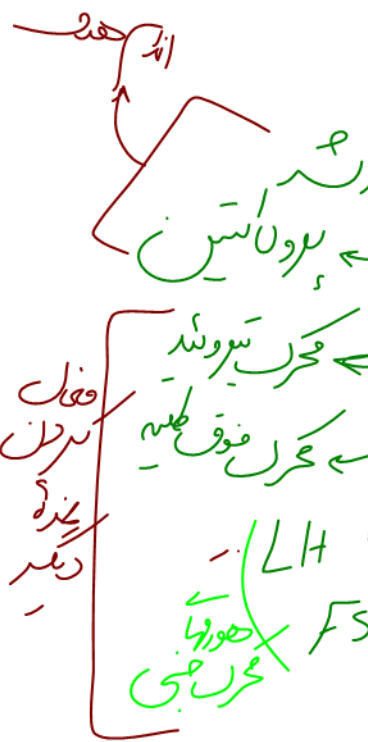 اندام هدف
رشد
پرولاکتین ←
محرک تیروئید ←
محرک فوق کلیه ←
فعال
کردن
غدهٔ
دیگر
LH
FS
هورمون‌ها
محرک جنسی